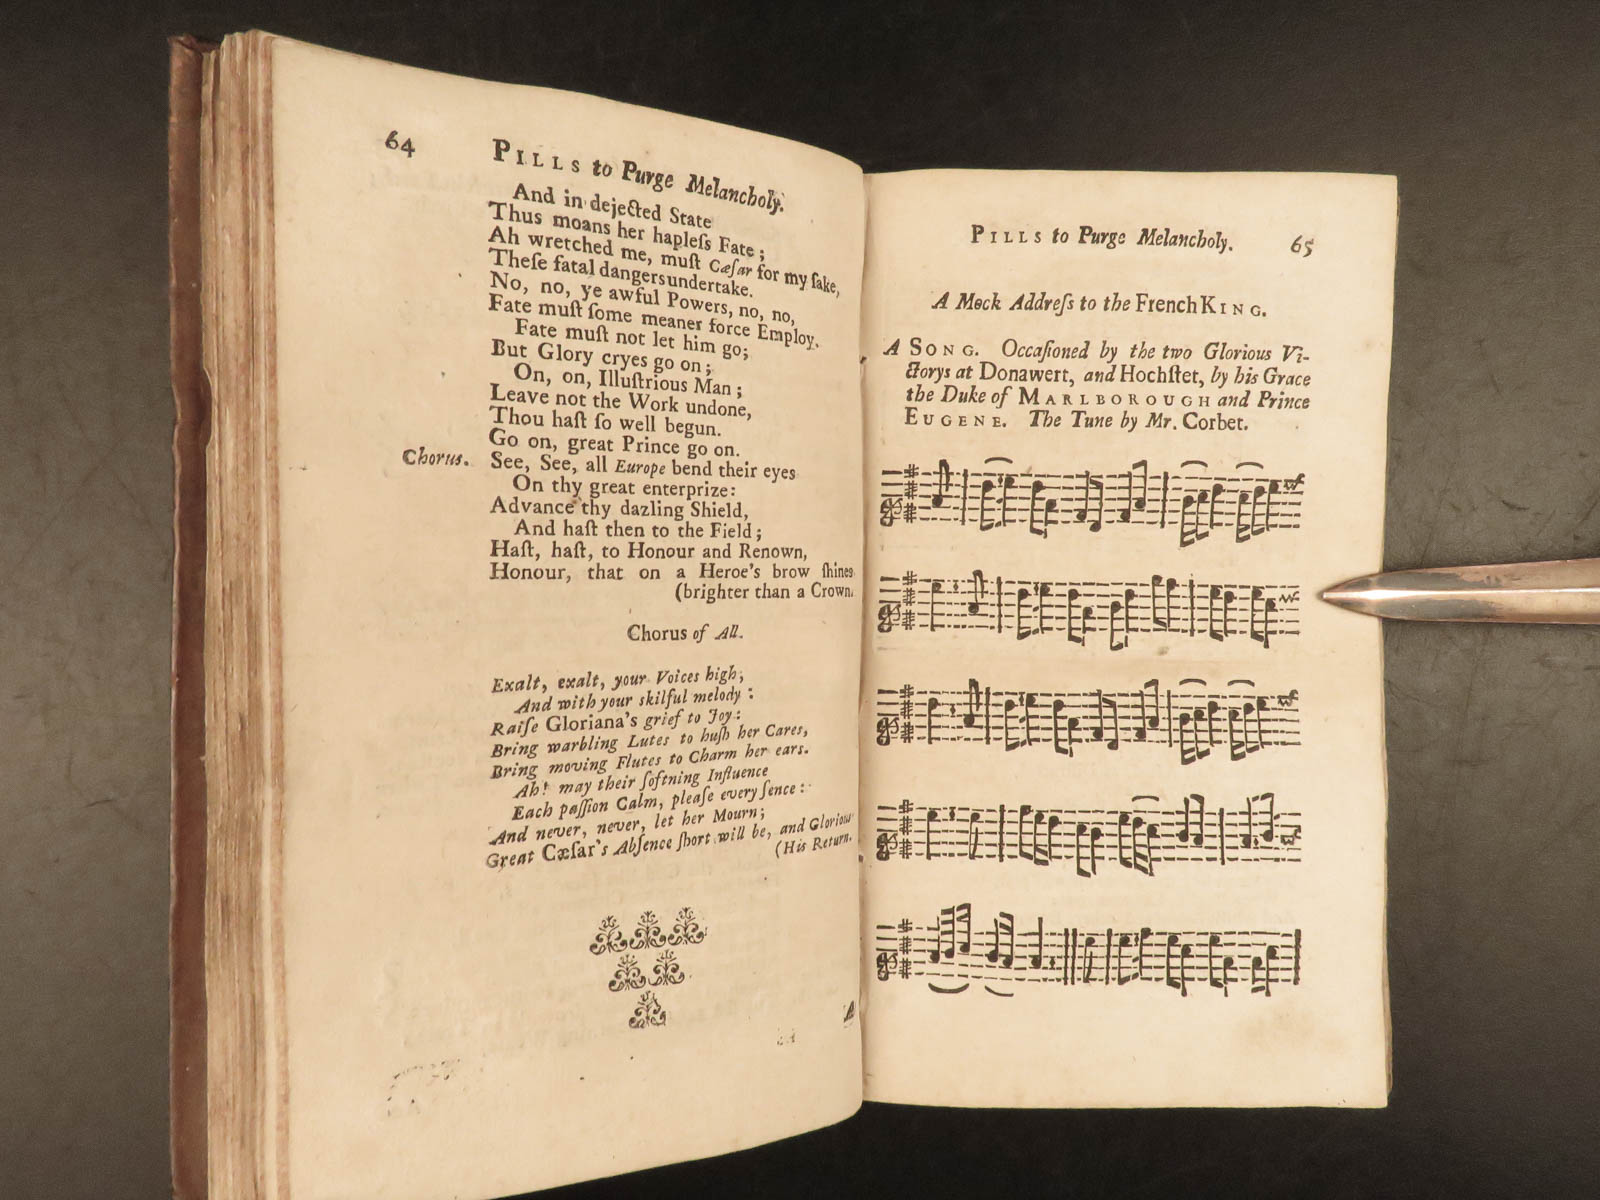 64
PILLS to Purge Melancholy.
And in dejected State
Thus moans her hapleſs Fate;
Ah wretched me, muſt Cæſar for my ſake,
Theſe fatal dangersundertake.
No, no, ye awful Powers, no, no,
Fate muſt ſome meaner force Employ.
Fate muſt not let him go;
But Glory cryes go on;
On, on, Illuſtrious Man;
Leave not the Work undone,
Thou haſt ſo well begun.
Go on, great Prince go on.
Chorus. See, See, all Europe bend their eyes
On thy great enterprize:
Advance thy dazling Shield,
And haſt then to the Field;
Haſt, haſt, to Honour and Renown,
Honour, that on a Heroe's brow ſhines
(brighter than a Crown.
Chorus of All.
Exalt, exalt, your Voices high;
And with your skilful melody:
Raiſe Gloriana's grief to Joy:
Bring warbling Lutes to huſh her Cares,
Bring moving Flutes to Charm her ears.
Ah! may their ſoftning Influence
Each paſſion Calm, pleaſe every ſence:
And never, never, let her Mourn;
Great Cæſar's Abſence ſhort will be, and Glorious
(His Return.
A
PILLS to Purge Melancholy. 65
A Mock Addreſs to the French KING.
A SONG. Occaſioned by the two Glorious Vi-
ctorys at Donawert, and Hochſtet, by his Grace
the Duke of MARLBOROUGH and Prince
EUGENE. The Tune by Mr. Corbet.